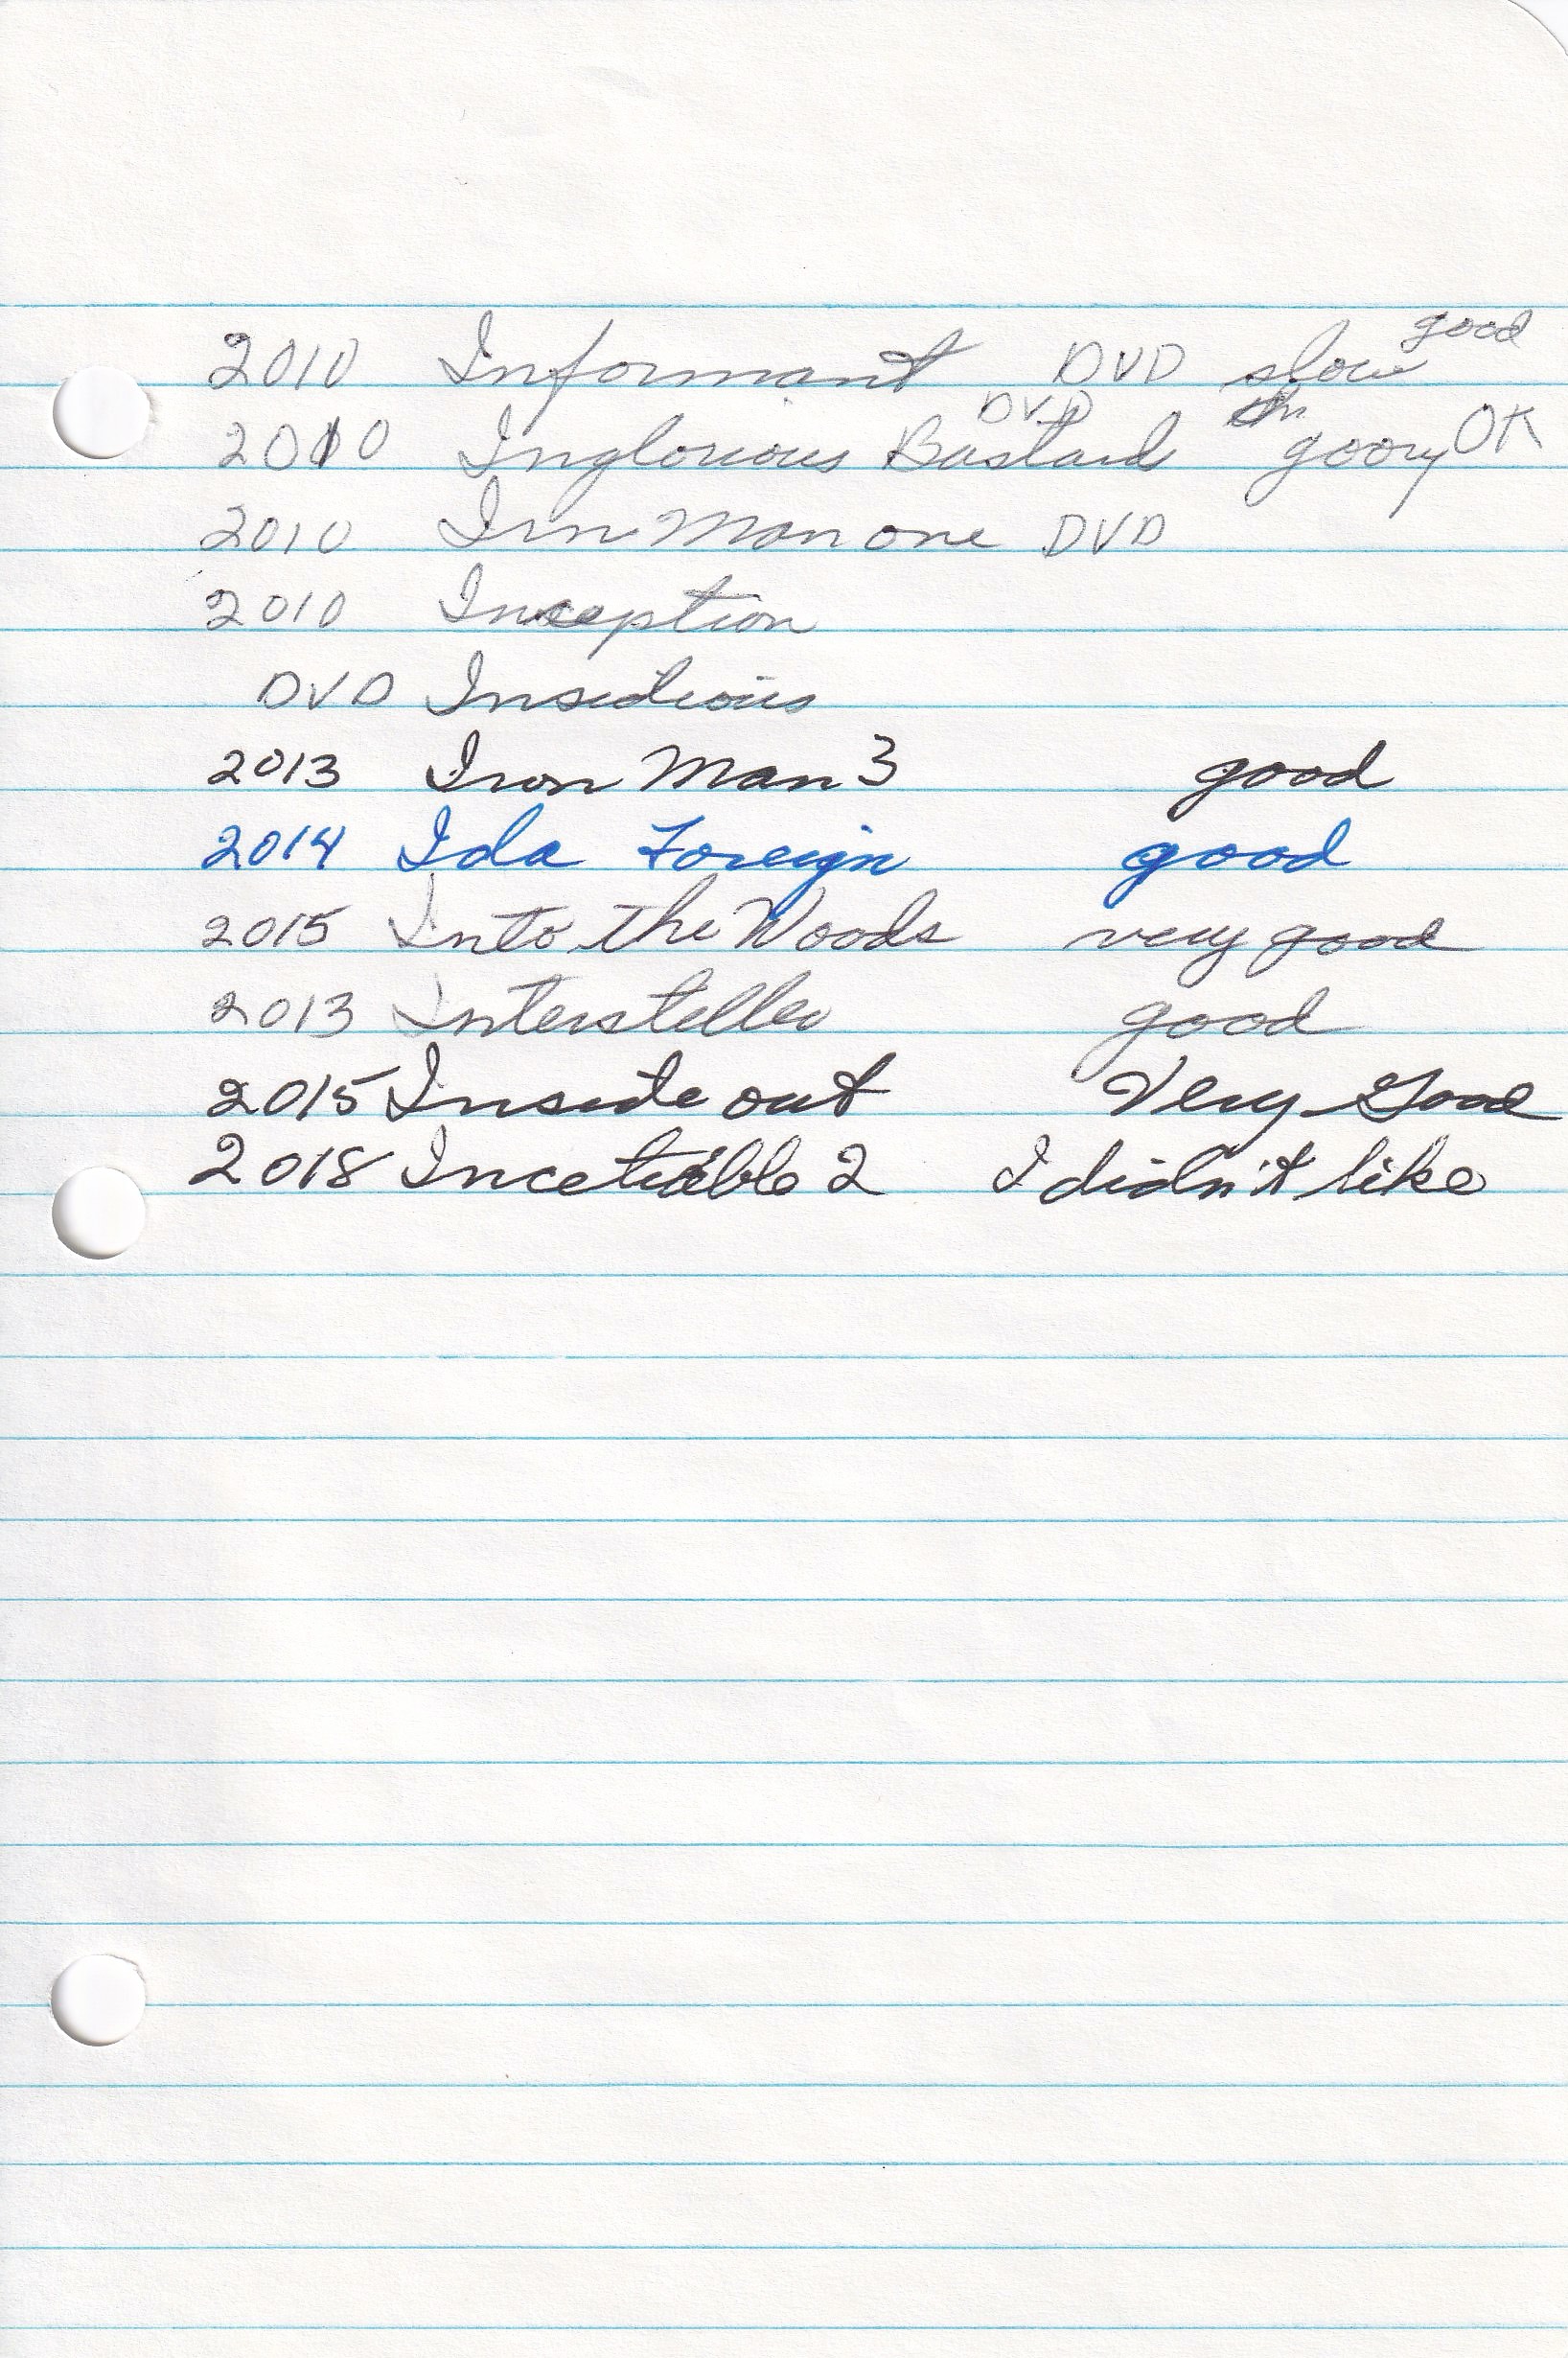 2010 Informant DVD slow good
2010 Inglorious Bastard DVD goory OK
2010 Irn Man one DVD
2010 Inception
DVD Insidious
2013 Iron Man 3 good
2014 Ida Foreign good
2015 Into the Woods very good
2013 Instersteller good
2015 Inside out Very Good
2018 2 I didn't like